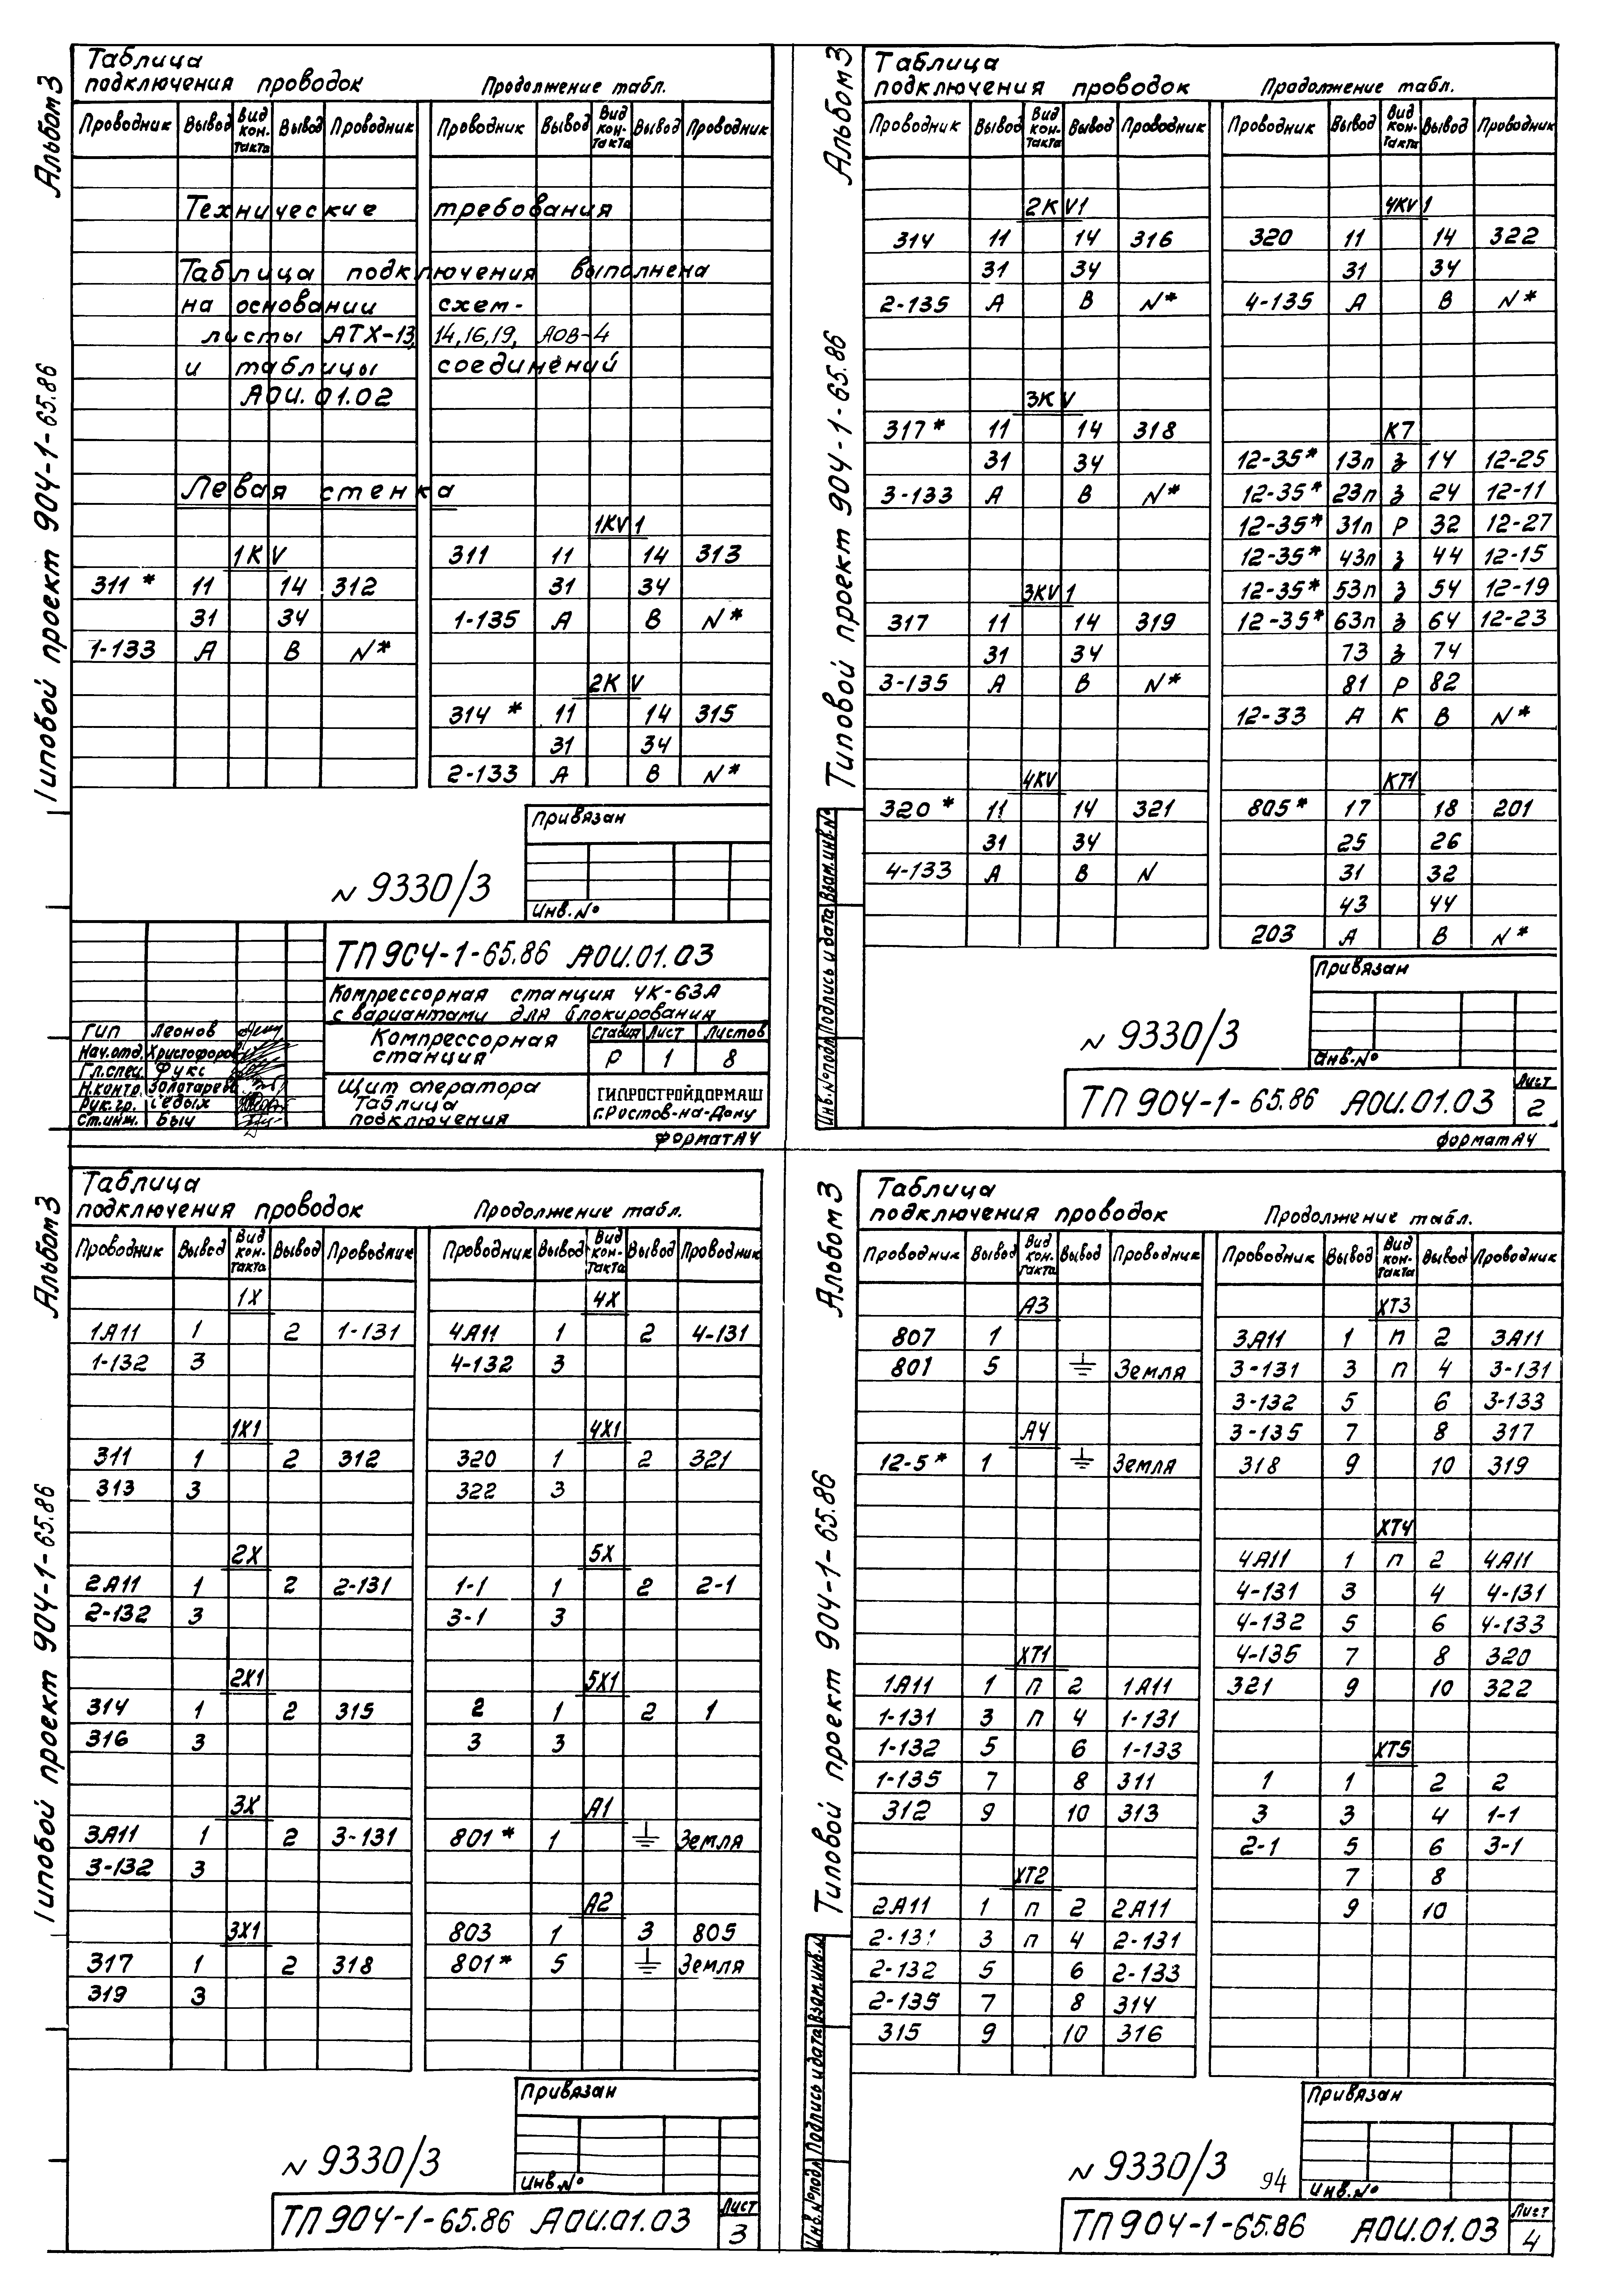 Альбом 3
Типовой проект 904-1-65.86
Таблица
подключения проводок Продолжение табл.
Проводник Вывод Вид кон-такта Вывод Проводник Проводник Вывод Вид кон-такта Вывод Проводник
Технические требования
Таблица подключения выполнена
на основании схем-
листы АТХ-13, 14,16,19, АОВ-4
и таблицы соединений
АОИ.01.02
Левая стенка
1KV
311* 11 14 312
31 34
1-133 А В N*
1KV1
311 11 14 313
31 34
1-135 А В N*
2KV
314* 11 14 315
31 34
2-133 А В N*
Привязан
Инв.№
N 9330/3
ТП 904-1-65.86 АОИ.01.03
Компрессорная станция 4К-63А
с вариантами для блокирования
ГИП Леонов
Нач.отд. Христофоров
Гл.спец. Фукс
Н.контр. Золотарева
Рук.гр. Седых
Ст.инж. Быч
Компрессорная
станция
Стадия Лист Листов
Р 1 8
Щит оператора
Таблица
подключения
ГИПРОСТРОЙДОРМАШ
г.Ростов-на-Дону
формат А4
Альбом 3
Типовой проект 904-1-65.86
Таблица
подключения проводок Продолжение табл.
Проводник Вывод Вид кон-такта Вывод Проводник Проводник Вывод Вид кон-такта Вывод Проводник
2KV1
314 11 14 316
31 34
2-135 А В N*
3KV
317* 11 14 318
31 34
3-133 А В N*
3KV1
317 11 14 319
31 34
3-135 А В N*
4KV
320* 11 14 321
31 34
4-133 А В N
4KV1
320 11 14 322
31 34
4-135 А В N*
К7
12-35* 13п з 14 12-25
12-35* 23п з 24 12-11
12-35* 31п р 32 12-27
12-35* 43п з 44 12-15
12-35* 53п з 54 12-19
12-35* 63п з 64 12-23
73 з 74
81 р 82
12-33 А К В N*
КТ1
805* 17 18 201
25 26
31 32
43 44
203 А В N*
Привязан
Инв.№
N 9330/3
Инв.№подл. Подпись и дата Взам.инв.№
ТП 904-1-65.86 АОИ.01.03
Лист
2
формат А4
Альбом 3
Типовой проект 904-1-65.86
Таблица
подключения проводок Продолжение табл.
Проводник Вывод Вид кон-такта Вывод Проводник Проводник Вывод Вид кон-такта Вывод Проводник
1Х
1А11 1 2 1-131
1-132 3
1Х1
311 1 2 312
313 3
2Х
2А11 1 2 2-131
2-132 3
2Х1
314 1 2 315
316 3
3Х
3А11 1 2 3-131
3-132 3
3Х1
317 1 2 318
319 3
4Х
4А11 1 2 4-131
4-132 3
4Х1
320 1 2 321
322 3
5Х
1-1 1 2 2-1
3-1 3
5Х1
2 1 2 1
3 3
А1
801* 1 ⏚ Земля
А2
803 1 3 805
801* 5 ⏚ Земля
Привязан
Инв.№
N 9330/3
ТП 904-1-65.86 АОИ.01.03
Лист
3
Альбом 3
Типовой проект 904-1-65.86
Таблица
подключения проводок Продолжение табл.
Проводник Вывод Вид кон-такта Вывод Проводник Проводник Вывод Вид кон-такта Вывод Проводник
А3
807 1
801 5 ⏚ Земля
А4
12-5* 1 ⏚ Земля
ХТ1
1А11 1 п 2 1А11
1-131 3 п 4 1-131
1-132 5 6 1-133
1-135 7 8 311
312 9 10 313
ХТ2
2А11 1 п 2 2А11
2-131 3 п 4 2-131
2-132 5 6 2-133
2-135 7 8 314
315 9 10 316
ХТ3
3А11 1 п 2 3А11
3-131 3 п 4 3-131
3-132 5 6 3-133
3-135 7 8 317
318 9 10 319
ХТ4
4А11 1 п 2 4А11
4-131 3 4 4-131
4-132 5 6 4-133
4-135 7 8 320
321 9 10 322
ХТ5
1 1 2 2
3 3 4 1-1
2-1 5 6 3-1
7 8
9 10
Привязан
Инв.№
N 9330/3
94
Инв.№подл. Подпись и дата Взам.инв.№
ТП 904-1-65.86 АОИ.01.03
Лист
4